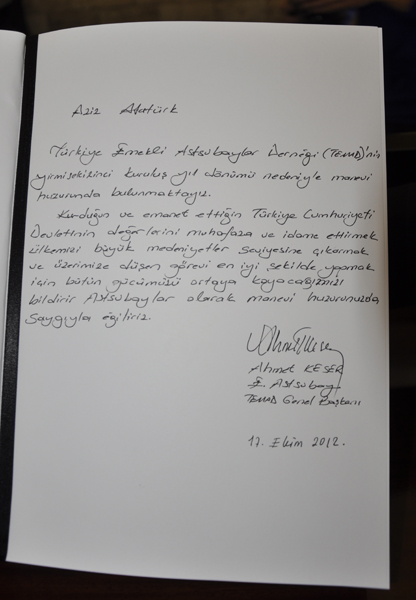 Aziz Atatürk
Türkiye Emekli Astsubaylar Derneği (TEMAD)'nin
yirmisekizinci kuruluş yıl dönümü nedeniyle manevi
huzurunda bulunmaktayız.
Kurduğun ve emanet ettiğin Türkiye Cumhuriyeti
Devletinin değerlerini muhafaza ve idame ettirmek
ülkemizi büyük medeniyetler seviyesine çıkarmak
ve üzerimize düşen görevi en iyi şekilde yapmak
için bütün gücümüzü ortaya koyacağımızı
bildirir Astsubaylar olarak manevi huzurunuzda
saygıyla eğiliriz.
Ahmet KESER
E. Astsubay
TEMAD Genel Başkanı
17. Ekim 2012.